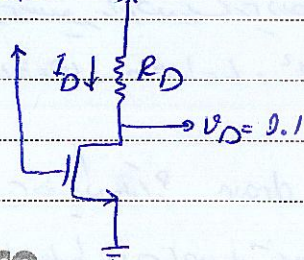 I_D↓ R_D
v_D = 0.1